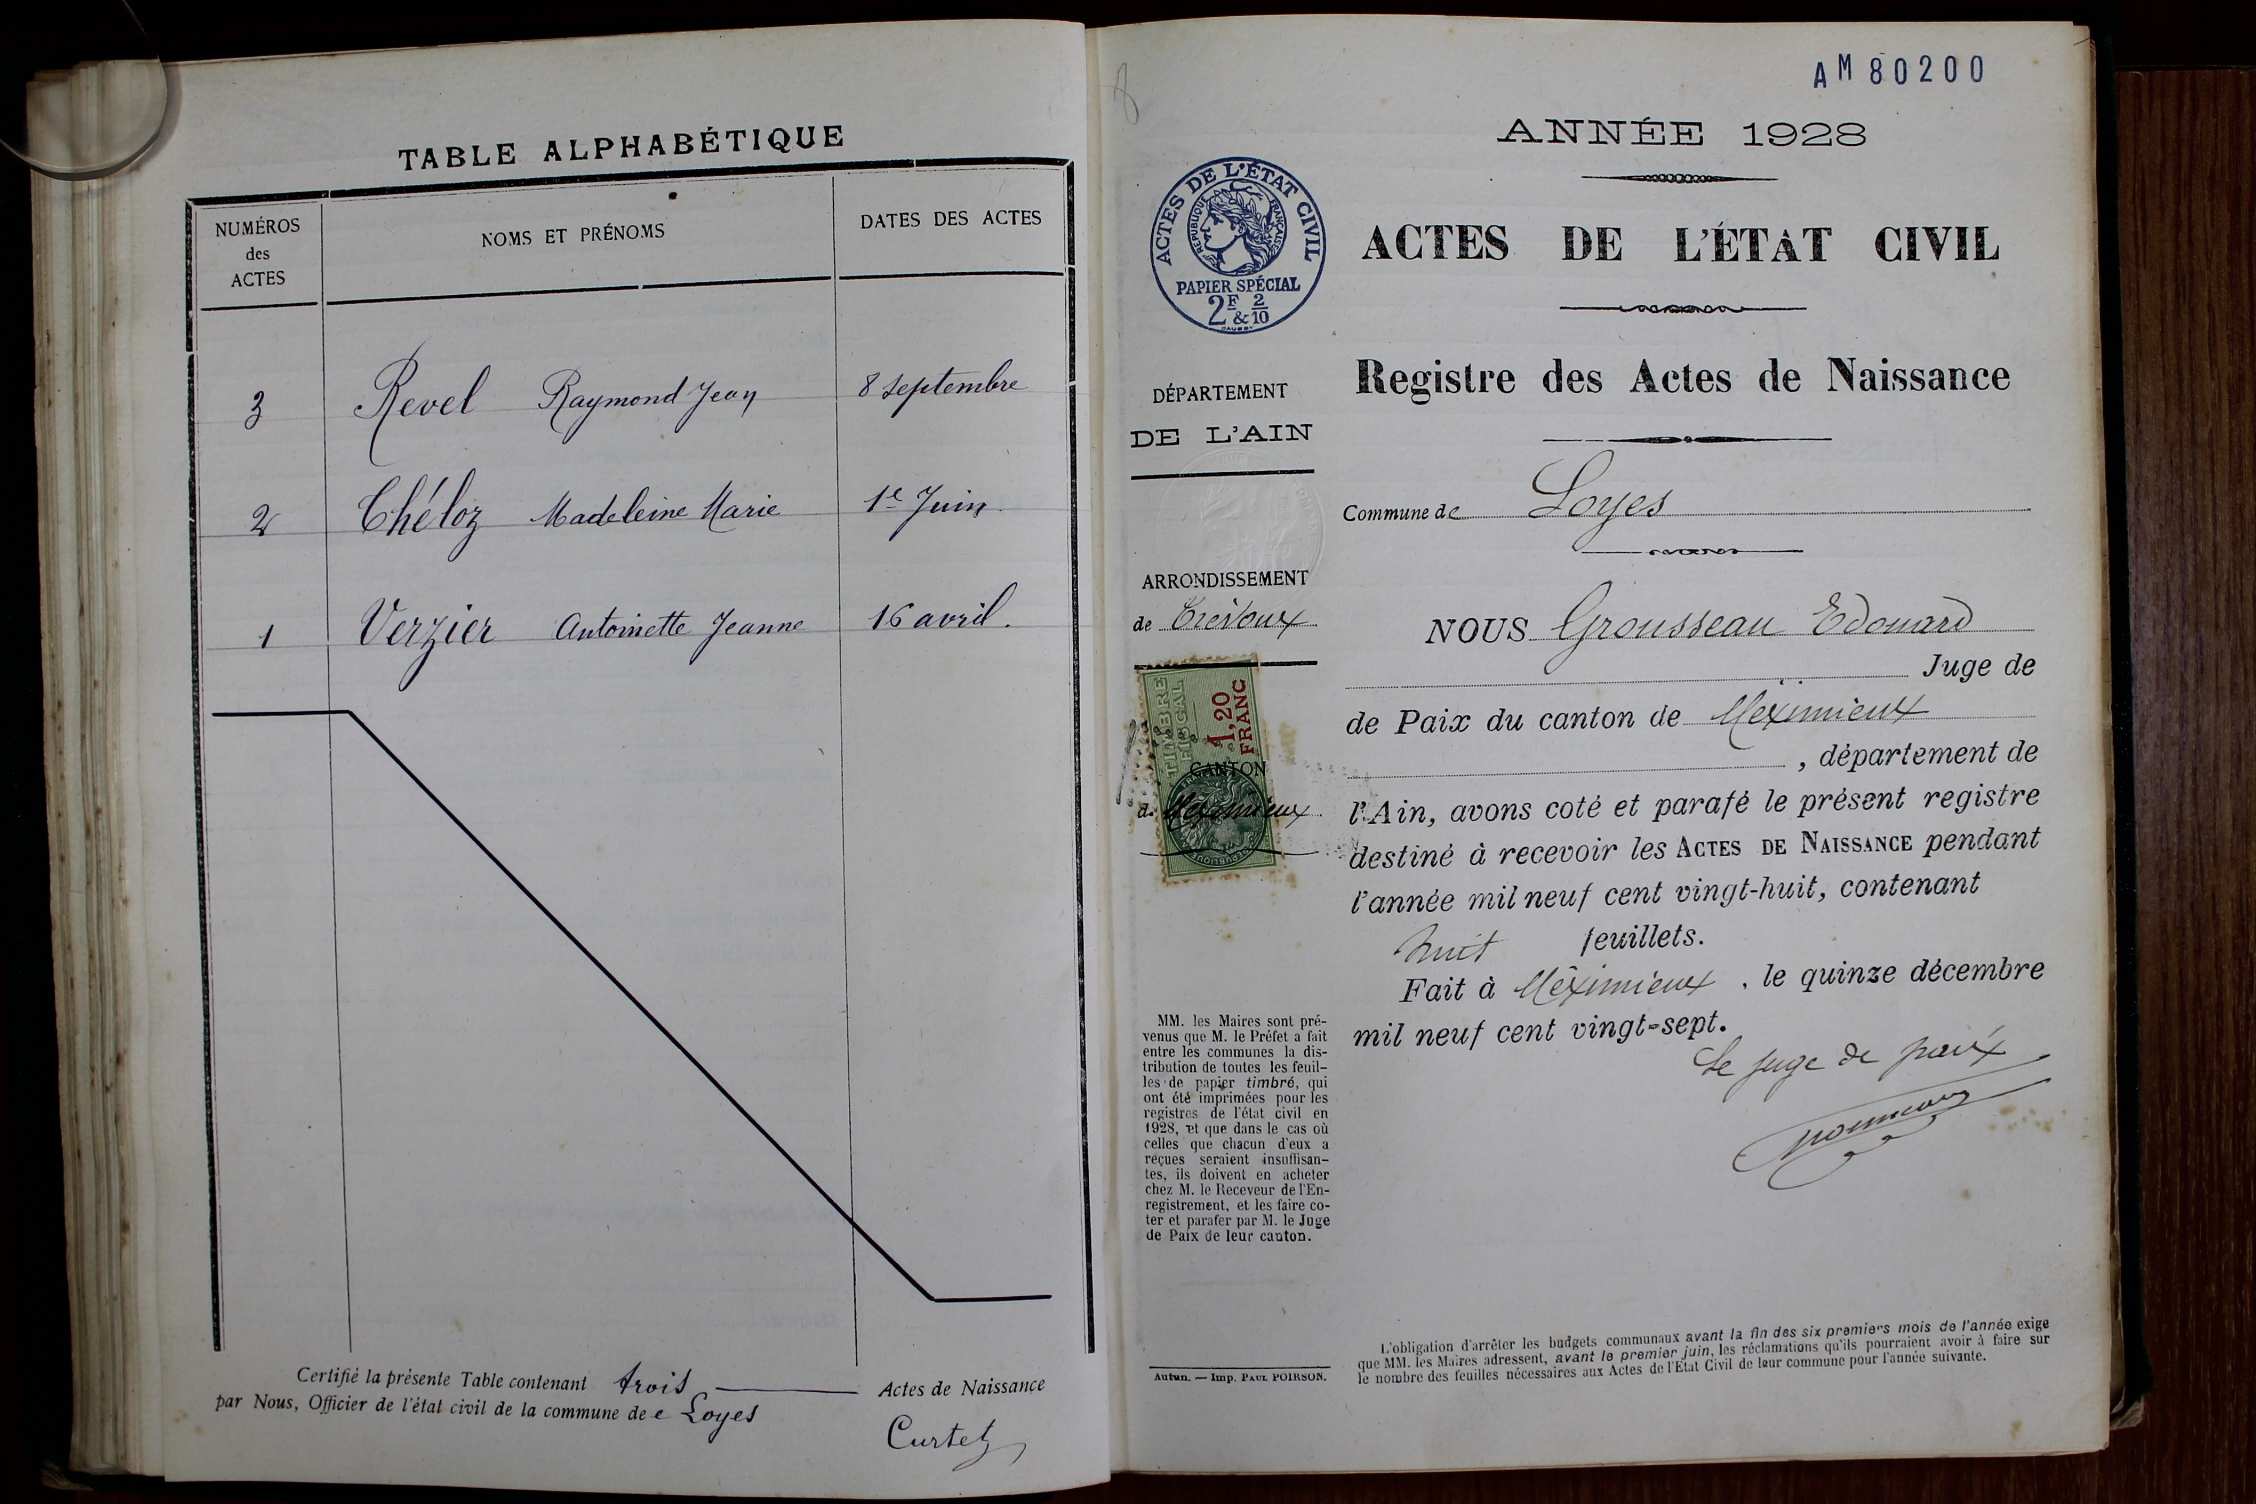 TABLE ALPHABÉTIQUE
NUMÉROS
des
ACTES
NOMS ET PRÉNOMS
DATES DES ACTES
3 Revel Raymond Jean 8 Septembre
2 Chéloz Madeleine Marie 1er Juin
1 Verzier Antoinette Jeanne 16 avril.
Certifié la présente Table contenant trois Actes de Naissance
par Nous, Officier de l'état civil de la commune de Loyes
Curtet
8
AM 80200
ANNÉE 1928
ACTES DE L'ÉTAT CIVIL
RÉPUBLIQUE FRANÇAISE
PAPIER SPÉCIAL
2F & 2/10
ACTES DE L'ÉTAT CIVIL
Registre des Actes de Naissance
DÉPARTEMENT
DE L'AIN
Commune de Loyes
ARRONDISSEMENT
de Trévoux
TIMBRE
FISCAL
1,20
FRANC
CANTON
de Méximieux
NOUS Grousseau Edouard
Juge de
de Paix du canton de Méximieux
, département de
l'Ain, avons coté et parafé le présent registre
destiné à recevoir les ACTES DE NAISSANCE pendant
l'année mil neuf cent vingt-huit, contenant
huit feuillets.
Fait à Méximieux, le quinze décembre
mil neuf cent vingt-sept.
Le juge de paix
MM. les Maires sont pré-
venus que M. le Préfet a fait
entre les communes la dis-
tribution de toutes les feuil-
les de papier timbré, qui
ont été imprimées pour les
registres de l'état civil en
1928, et que dans le cas où
celles que chacun d'eux a
reçues seraient insuffisan-
tes, ils doivent en acheter
chez M. le Receveur de l'En-
registrement, et les faire co-
ter et parafer par M. le Juge
de Paix de leur canton.
Autun. — Imp. PAUL POIRSON.
L'obligation d'arrêter les budgets communaux avant la fin des six premiers mois de l'année exige
que MM. les Maires adressent, avant le premier juin, les réclamations qu'ils pourraient avoir à faire sur
le nombre des feuilles nécessaires aux Actes de l'Etat Civil de leur commune pour l'année suivante.